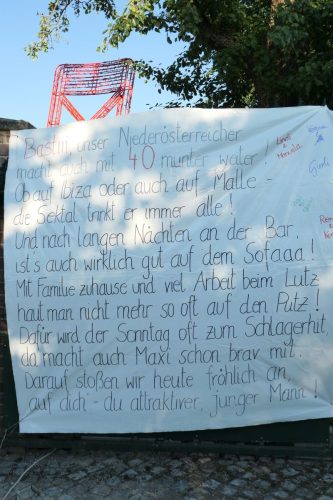 Bastiii, unser Niederösterreicher
macht auch mit 40 munter weiter!
Ob auf Ibiza oder auch auf Malle -
die Sektal trinkt er immer alle!
Und nach langen Nächten an der Bar,
ist's auch wirklich gut auf dem Sofaaa!
Mit Familie zuhause und viel Arbeit beim Lutz
haut man nicht mehr so oft auf den Putz!
Dafür wird der Sonntag oft zum Schlagerhit,
da macht auch Maxi schon brav mit.
Darauf stoßen wir heute fröhlich an,
auf dich - du attraktiver, junger Mann!